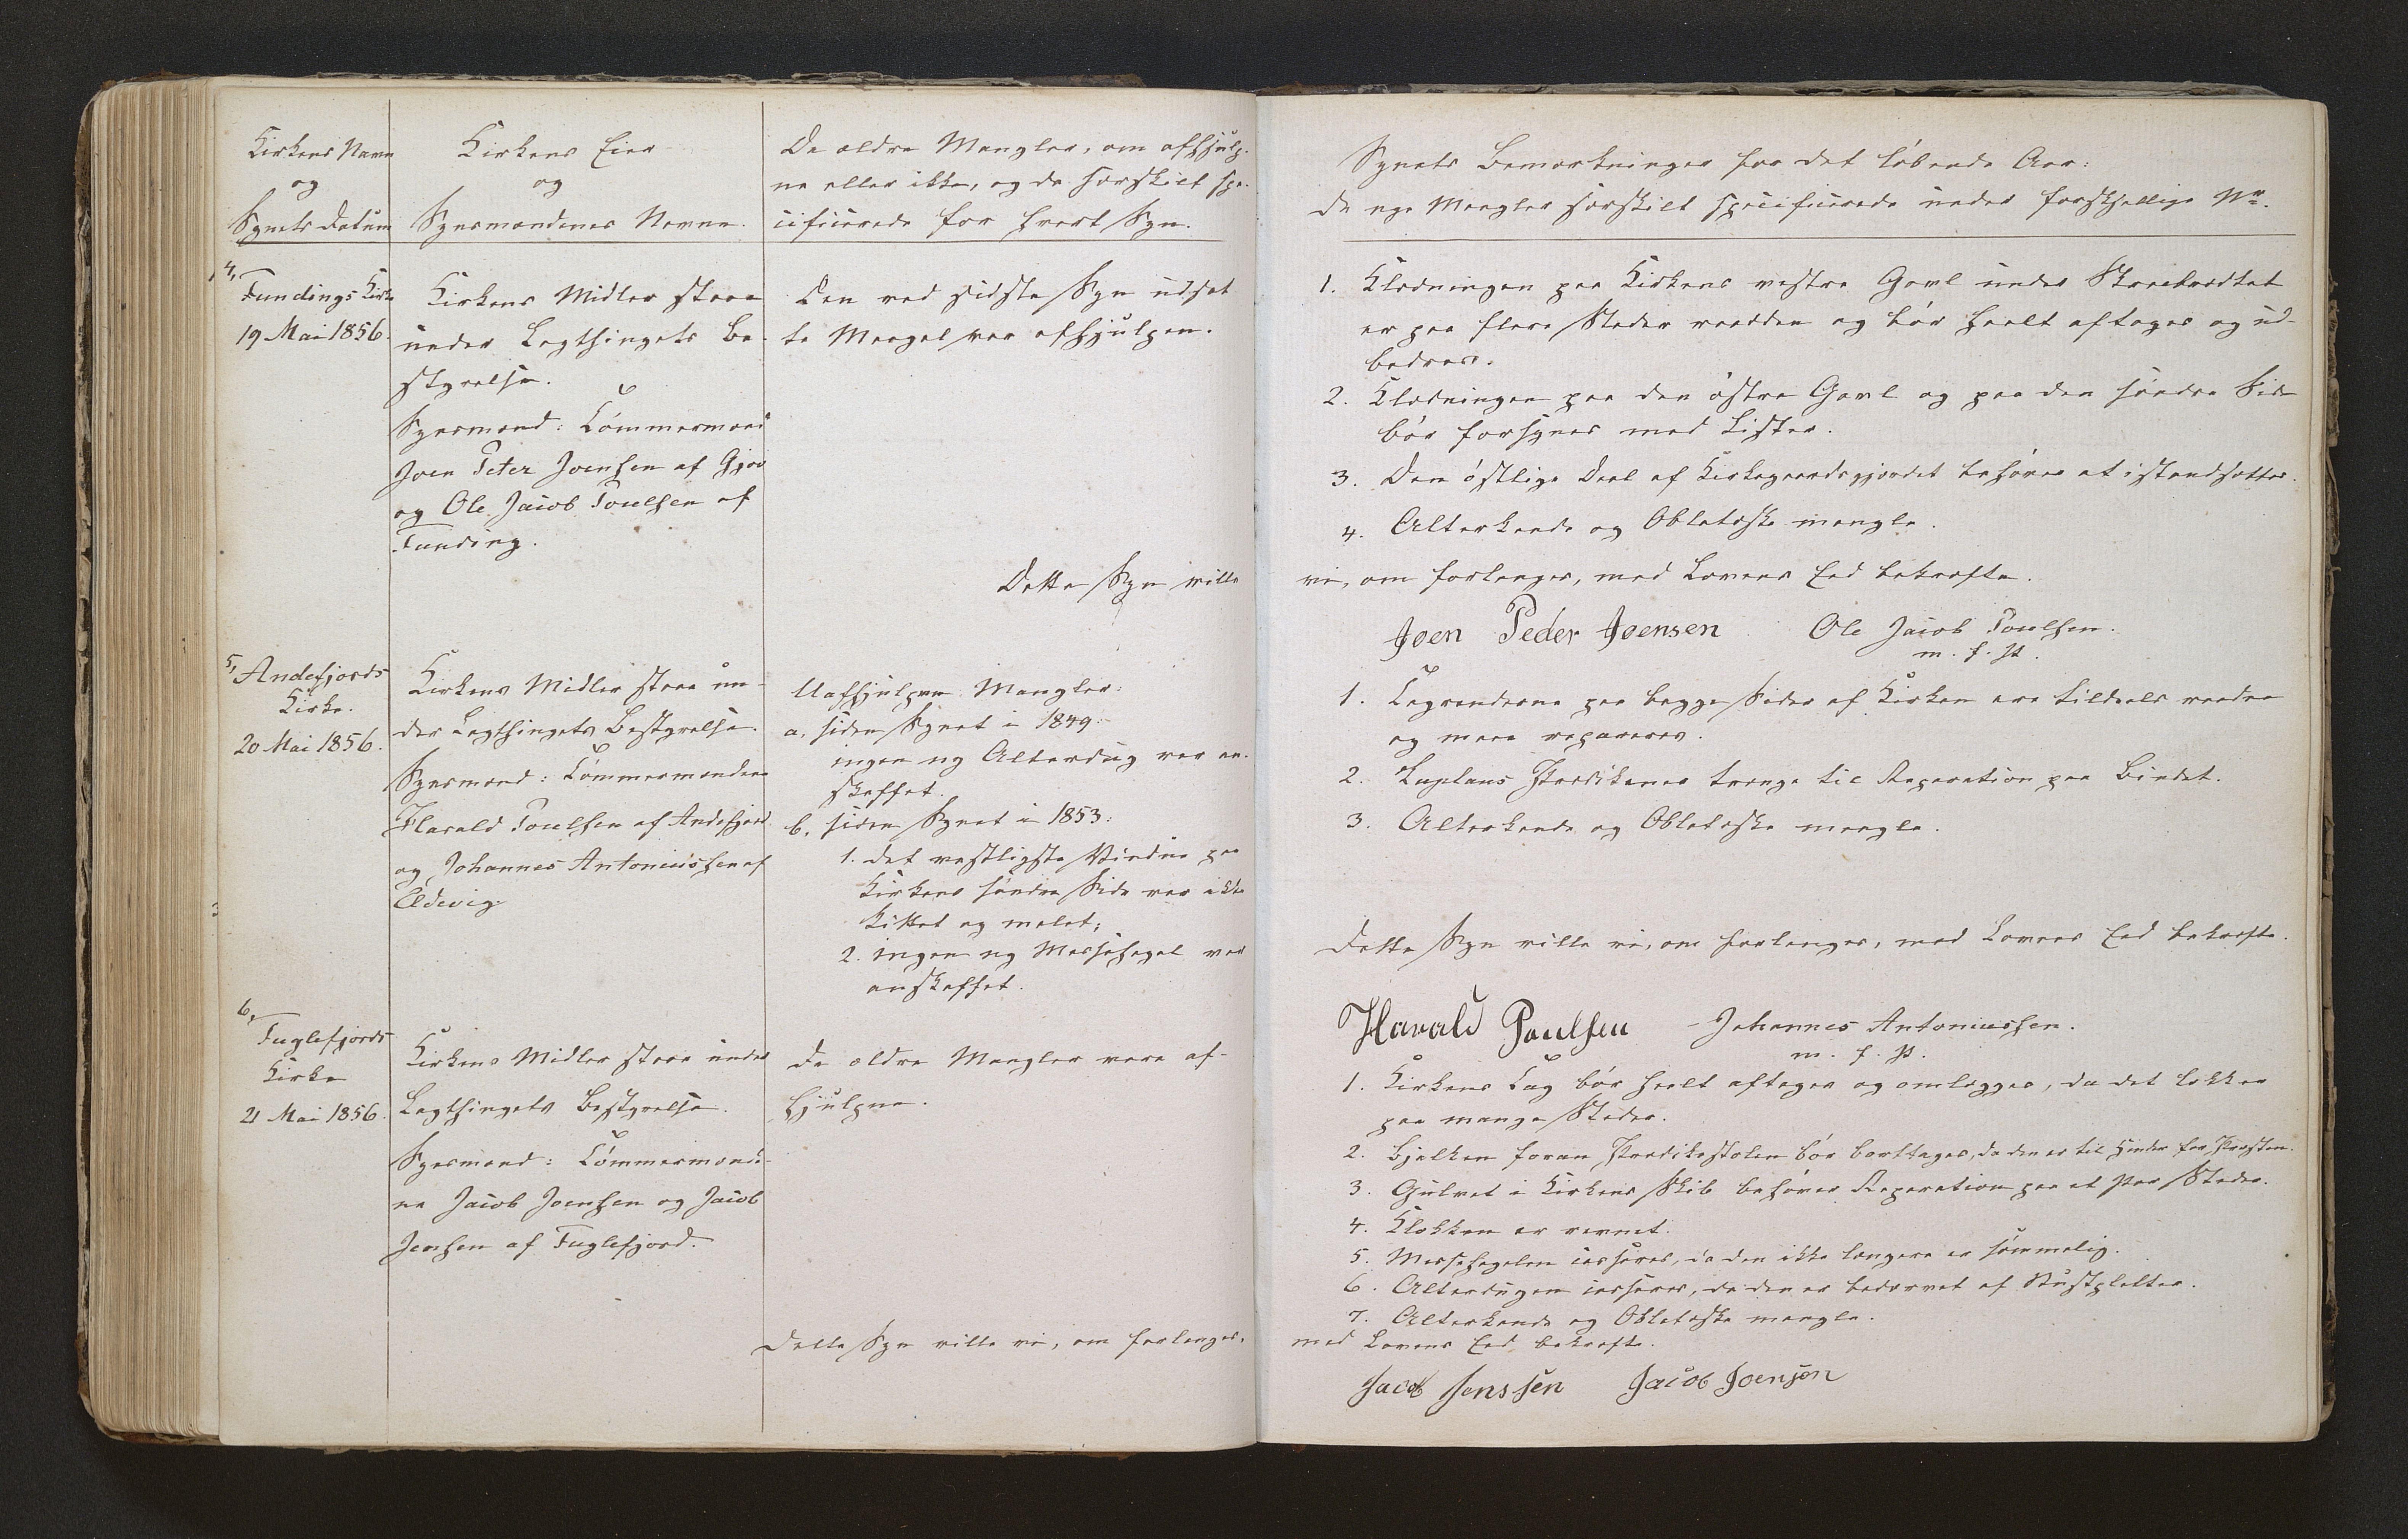 Kirkens Navn
og
Synets Datum
Kirkens Eier
og
Synsmændenes Navne.
De ældre Mangler, om afhjulp-
ne eller ikke, og da særskilt spe-
cificerede for hvert Syn.
4,
Fundings Kirke
19 Mai 1856.
Kirkens Midler staae
under Lagthingets Be-
styrelse.
Synsmænd: Tømmermænd
Joen Peter Joensen af Gjov
og Ole Jacob Poulsen af
Funding.
Den ved sidste Syn udsat
te Mangel var afhjulpen.
Dette Syn ville
5,
Andefjords
Kirke.
20 Mai 1856.
Kirkens Midler staae un-
der Lagthingets Bestyrelse.
Synsmænd: Tømmermændene
Harald Poulsen af Andefjord
og Johannes Antoniussen af
Eldevig.
Uafhjulpne Mangler:
a. siden Synet i 1849:
ingen ny Alterdug var an-
skaffet.
b. siden Synet i 1853:
1. det vestligste Vindue paa
Kirkens søndre Side var ikke
kittet og malet;
2. ingen ny Messehagel var
anskaffet.
6,
Fuglefjords
Kirke
21 Mai 1856.
Kirkens Midler staae under
Lagthingets Bestyrelse.
Synsmænd: Tømmermænde-
ne Jacob Joensen og Jacob
Jensen af Fuglefjord.
De ældre Mangler vare af-
hjulpne.
Dette Syn ville vi, om forlanges,
Synets Bemærkninger for det løbende Aar:
de nye Mangler særskilt specificerede under forskjellige Nr.
1. Klædningen paa Kirkens vestre Gavl under Skarebrædtet
er paa flere Steder raadden og bør heelt aftages og ud-
bedres.
2. Klædningen paa den østre Gavl og paa den søndre Side
bør forsynes med Lister.
3. Den østlige Deel af Kirkegaardsgjerdet behøver at istandsættes.
4. Alterkande og Oblatæske mangle.
vi, om forlanges, med Lovens Eed bekræfte.
Joen Peder Joensen Ole Jacob Poulsen.
m. f. P.
1. Tagrenderne paa begge Sider af Kirken ere tildeels raadne
og maae repareres.
2. Luplaus Prædikener trænge til Reparation paa Bindet.
3. Alterkande og Oblatæske mangle.
Dette Syn ville vi, om forlanges, med Lovens Eed bekræfte.
Harald Poulsen Johannes Antoniussen.
m. f. P.
1. Kirkens Tag bør heelt aftages og omlægges, da det lækker
paa mange Steder.
2. Bjelken foran Prædikestolen bør borttages, da den er til Hinder for Præsten.
3. Gulvet i Kirkens Skib behøver Reparation paa et Par Steder.
4. Klokken er revnet.
5. Messehagelen casseres, da den ikke længere er sømmelig.
6. Alterdugen casseres, da den er bedærvet af Rustpletter.
7. Alterkande og Oblatæske mangle.
med Lovens Eed bekræfte.
Jacob Jenssen Jacob Joensen